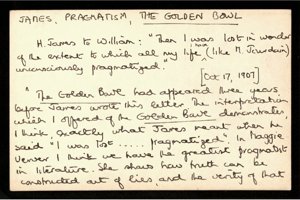 JAMES, PRAGMATISM, THE GOLDEN BOWL
H. James to William: "Then I was lost in wonder
of the extent to which all my life (like M. Jourdain)
unconsciously pragmatized."
[Oct 17, 1907]
"The Golden Bowl had appeared three years
before James wrote this letter. The interpretation
which I offered of the Golden Bowl demonstrates,
I think, exactly what James meant when he
said "I was lost ..... pragmatized". In Maggie
Verver I think we have the greatest pragmatist
in literature. She shows how truth can be
constructed out of lies, and the verity of that